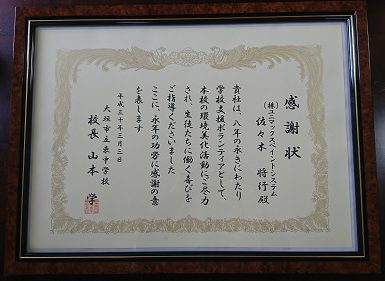 感謝状
(株)ユニマックスペイントシステム
佐々木 将行殿
貴社は、八年の永きにわたり
学校支援ボランティアとして、
本校の環境美化活動にご尽力
され、生徒たちに働く喜びを
ご指導くださいました
ここに、永年の功労に感謝の意
を表します
平成三十年三月三日
大垣市立東中学校
校長 山本 学